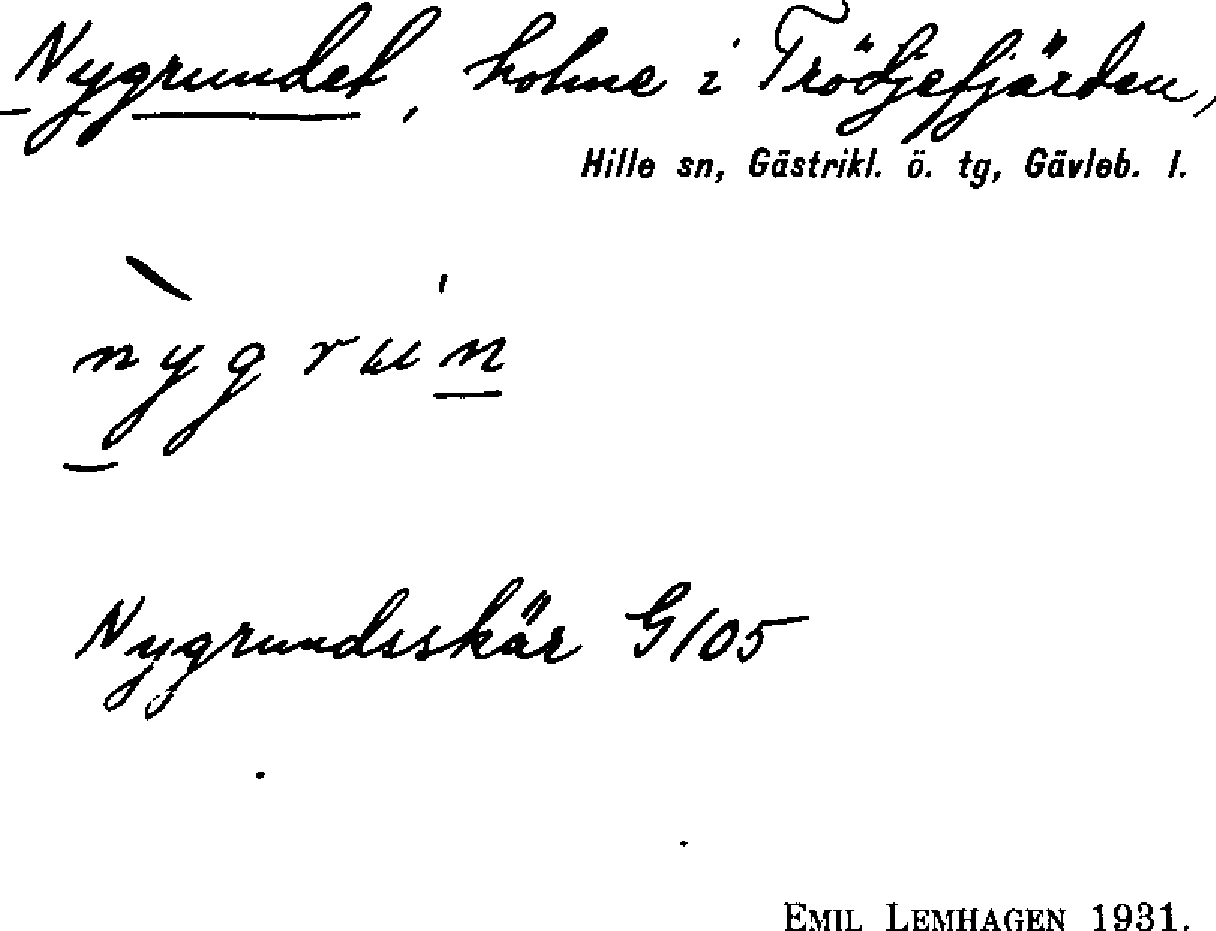 Nygrundet, holme i Trödjefjärden,
Hille sn, Gästrikl. ö. tg, Gävleb. l.
nỳgrun
Nygrundsskär G105
EMIL LEMHAGEN 1931.